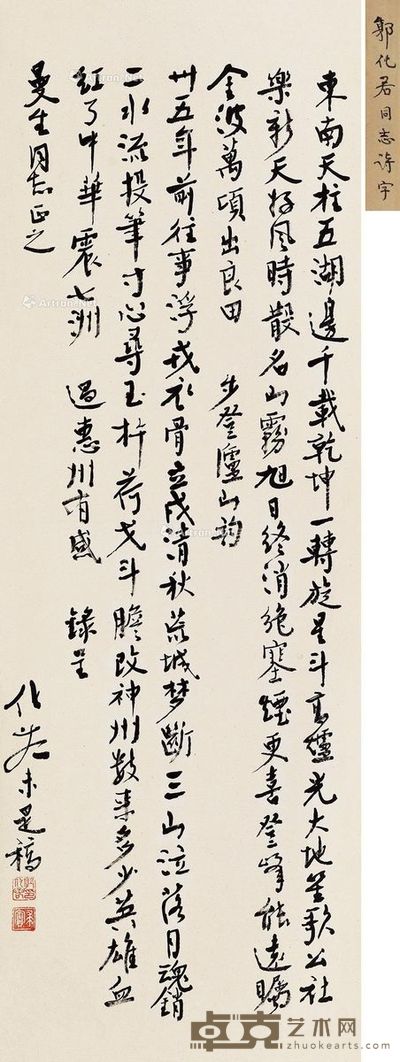 郭化若同志诗字
東南天柱五湖邊千載乾坤一轉旋星斗高爐光大地笙歌公社
樂新天好風時散名山霧旭日終消絶塞煙更喜登峰能遠矚
金波萬頃出良田 步登廬山韵
卅五年前往事浮戎衣骨立戍清秋荒城梦斷三山泣落月魂銷
二水流投筆寸心尋玉杵荷戈斗膽改神州数来多少英雄血
红了中華震七洲 過惠州有感 錄呈
曼生同志正之
化若未是稿
Artron.Net
卓克艺术网
www.zhuokearts.com